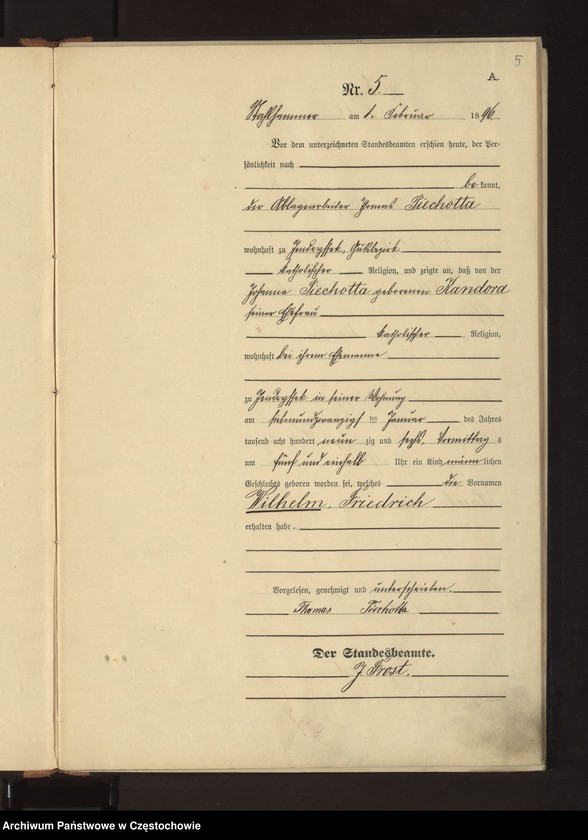 5
A.
Nr. 5.
Stahlhammer am 1. Februar 1896
Vor dem unterzeichneten Standesbeamten erschien heute, der Per-
sönlichkeit nach
bekannt,
der Ablagearbeiter Thomas Piechotta
wohnhaft zu Jendryssek, Gutsbezirk
katholischer Religion, und zeigte an, daß von der
Johanna Piechotta geborenen Kandora
seiner Ehefrau
katholischer Religion,
wohnhaft bei ihrem Ehemanne
zu Jendryssek in seiner Wohnung
am siebenundzwanzigsten Januar des Jahres
tausend acht hundert neunzig und sechs, Vormittags
um fünf und einhalb Uhr ein Kind männlichen
Geschlechts geboren worden sei, welches die Vornamen
Wilhelm Friedrich
erhalten habe.
Vorgelesen, genehmigt und unterschrieben.
Thomas Piechotta
Der Standesbeamte.
J. Frost.
Archiwum Państwowe w Częstochowie